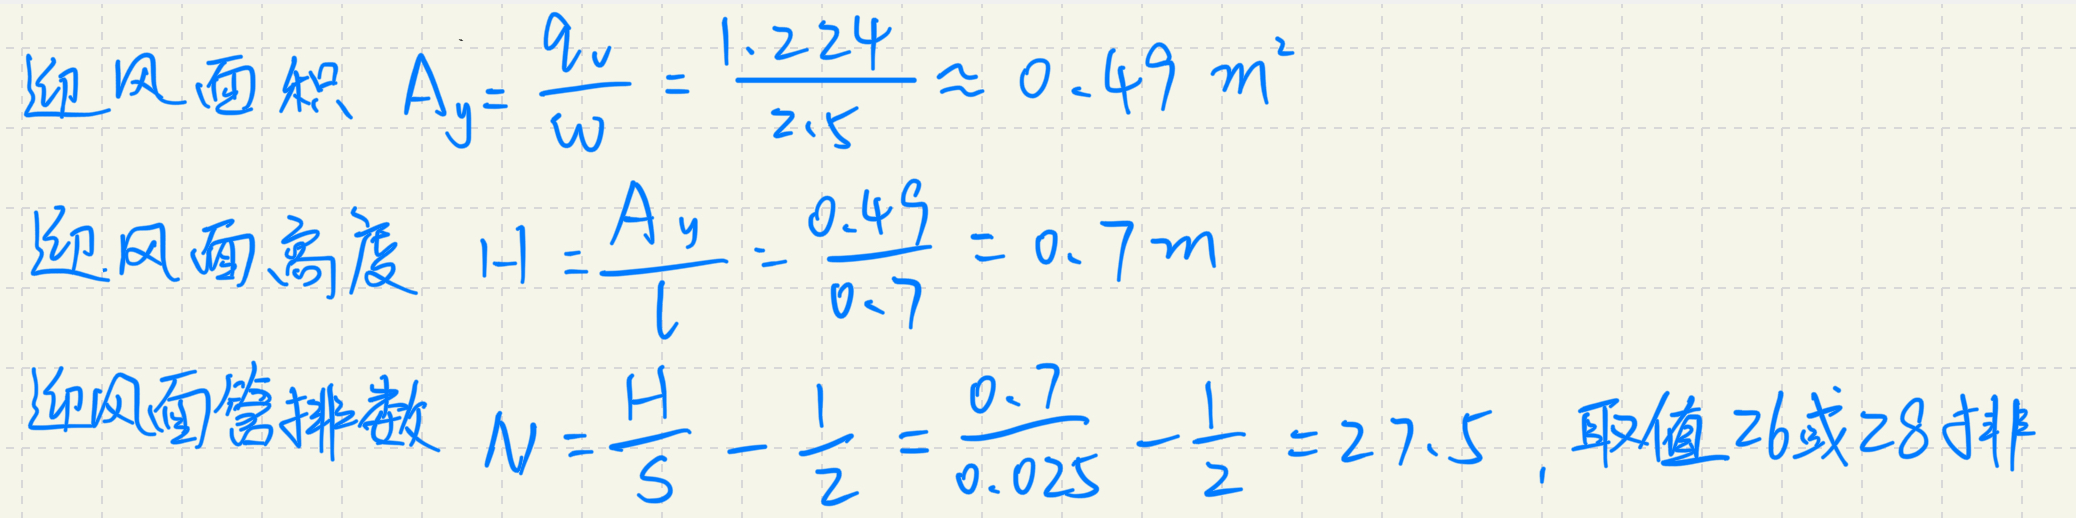 迎风面积 A_y = q_v / w = 1.224 / 2.5 ≈ 0.49 m²
迎风面高度 H = A_y / l = 0.49 / 0.7 = 0.7 m
迎风面管排数 N = H / S - 1 / 2 = 0.7 / 0.025 - 1 / 2 = 27.5, 取值26或28排